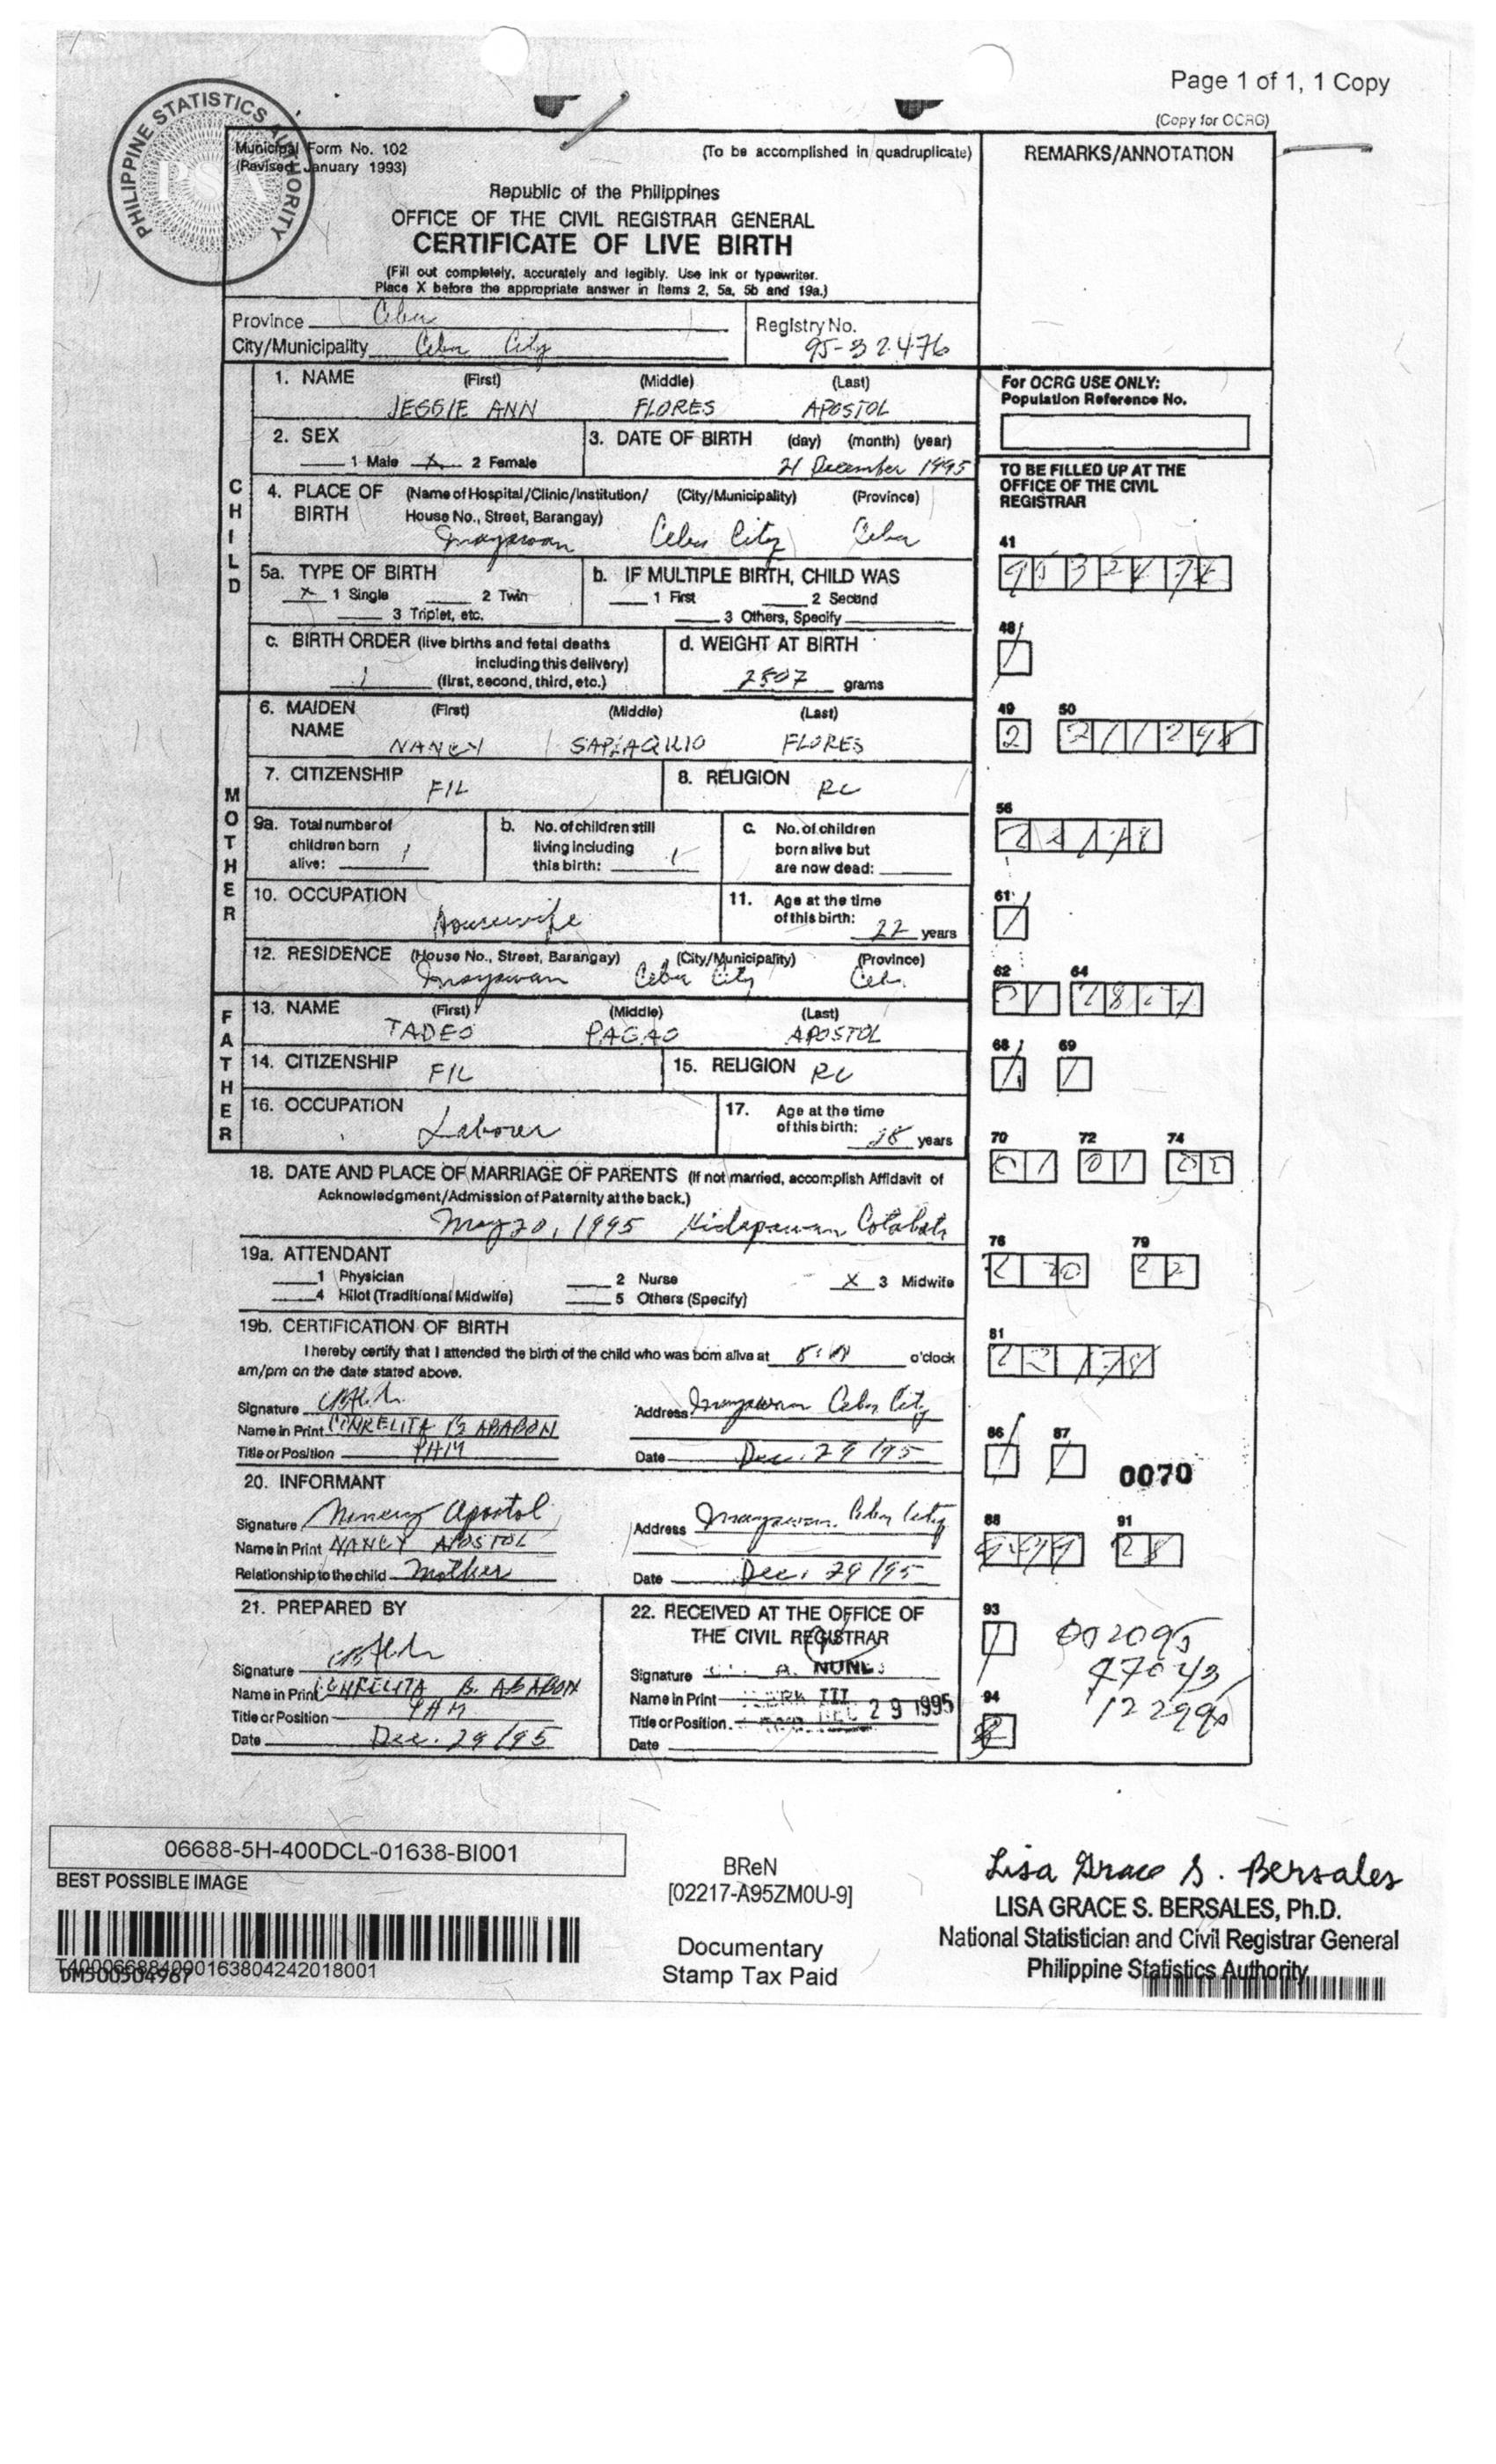 Page 1 of 1, 1 Copy
(Copy for OCRG)
PHILIPPINE STATISTICS AUTHORITY
PSA
Municipal Form No. 102
(Revised January 1993)
(To be accomplished in quadruplicate)
REMARKS/ANNOTATION
Republic of the Philippines
OFFICE OF THE CIVIL REGISTRAR GENERAL
CERTIFICATE OF LIVE BIRTH
(Fill out completely, accurately and legibly. Use ink or typewriter.
Place X before the appropriate answer in Items 2, 5a, 5b and 19a.)
Province Cebu
City/Municipality Cebu City
Registry No.
95-32476
CHILD
1. NAME (First) (Middle) (Last)
JESSIE ANN FLORES APOSTOL
For OCRG USE ONLY:
Population Reference No.
2. SEX
1 Male X 2 Female
3. DATE OF BIRTH (day) (month) (year)
21 December 1995
TO BE FILLED UP AT THE
OFFICE OF THE CIVIL
REGISTRAR
4. PLACE OF BIRTH (Name of Hospital/Clinic/Institution/ (City/Municipality) (Province)
House No., Street, Barangay)
Cebu City Cebu
41
5a. TYPE OF BIRTH
X 1 Single 2 Twin
3 Triplet, etc.
b. IF MULTIPLE BIRTH, CHILD WAS
1 First 2 Second
3 Others, Specify
c. BIRTH ORDER (live births and fetal deaths
including this delivery)
1 (first, second, third, etc.)
d. WEIGHT AT BIRTH
2507 grams
48
MOTHER
6. MAIDEN NAME (First) (Middle) (Last)
NANCY FLORES
49 50
2
7. CITIZENSHIP FIL
8. RELIGION RC
9a. Total number of
children born
alive: 1
b. No. of children still
living including
this birth: 1
c. No. of children
born alive but
are now dead:
56
10. OCCUPATION
Housewife
11. Age at the time
of this birth:
22 years
61
12. RESIDENCE (House No., Street, Barangay) (City/Municipality) (Province)
Cebu City Cebu
62 64
FATHER
13. NAME (First) (Middle) (Last)
TADEO PAGAO APOSTOL
14. CITIZENSHIP FIL
15. RELIGION RC
68 69
16. OCCUPATION
Laborer
17. Age at the time
of this birth:
years
70 72 74
18. DATE AND PLACE OF MARRIAGE OF PARENTS (If not married, accomplish Affidavit of
Acknowledgment/Admission of Paternity at the back.)
May 20, 1995 Kidapawan Cotabato
19a. ATTENDANT
1 Physician 2 Nurse X 3 Midwife
4 Hilot (Traditional Midwife) 5 Others (Specify)
76 79
19b. CERTIFICATION OF BIRTH
I hereby certify that I attended the birth of the child who was born alive at o'clock
am/pm on the date stated above.
81
Signature
Name in Print B ABABON
Title or Position
Address Cebu City
Date Dec. 29/95
86 87
0070
20. INFORMANT
Signature Nancy Apostol
Name in Print NANCY APOSTOL
Relationship to the child Mother
Address Cebu City
Date Dec. 29/95
88 91
21. PREPARED BY
Signature
Name in Print B. ABABON
Title or Position
Date Dec. 29/95
22. RECEIVED AT THE OFFICE OF
THE CIVIL REGISTRAR
Signature
Name in Print III
Title or Position DEC 29 1995
Date
93
94
06688-5H-400DCL-01638-BI001
BEST POSSIBLE IMAGE
T400066884000163804242018001
DM500504967
BReN
[02217-A95ZM0U-9]
Documentary
Stamp Tax Paid
Lisa Grace S. Bersales
LISA GRACE S. BERSALES, Ph.D.
National Statistician and Civil Registrar General
Philippine Statistics Authority